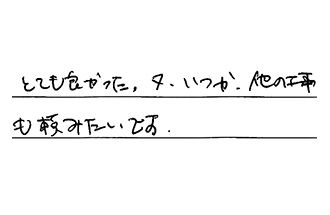 とても良かった。又、いつか、他の工事
も頼みたいです.